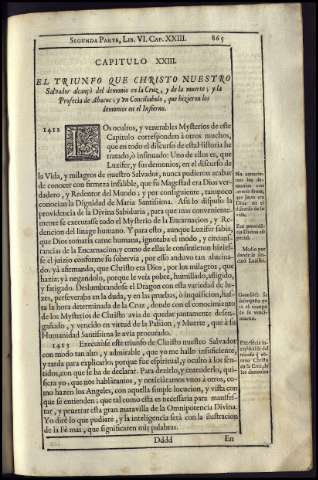 SEGUNDA PARTE, LIB. VI. CAP. XXIII. 865
CAPITULO XXIII.
EL TRIUNFO QUE CHRISTO NUESTRO
Salvador alcançò del demonio en la Cruz, y de la muerte; y la
Profecia de Abacuc; y vn Conciliabulo, que hizieron los
demonios en el Infierno.
1412 LOs ocultos, y venerables Mysterios de este
Capitulo corresponden à otros muchos,
que en todo el discurso de esta Historia he
tratado, ò insinuado: Uno de ellos es, que
Luzifer, y sus demonios, en el discurso de
la Vida, y milagros de nuestro Salvador, nunca pudieron acabar
de conocer con firmeza infalible, que su Magestad era Dios ver-
dadero, y Redentor del Mundo; y por consiguiente, tampoco
conocian la Dignidad de Maria Santissima. Assi lo dispuso la
providencia de la Divina Sabiduria, para que mas conveniente-
mente se executasse todo el Mysterio de la Encarnacion, y Re-
dencion del linage humano. Y para esto, aunque Luzifer sabia,
que Dios tomaria carne humana, ignoraba el modo, y circuns-
tancias de la Encarnacion; y como de ellas se consintieron hizies-
se el juizio conforme su sobervia, por esso anduvo tan alucina-
do; yà afirmando, que Christo era Dios, por los milagros, que
hazia; yà negandolo, porque le veìa pobre, humillado, afligido,
y fatigado. Deslumbrandose el Dragon con esta variedad de lu-
zes, perseveraba en la duda, y en las pruebas, ò inquisicion, has-
ta la hora determinada de la Cruz, donde con el conocimiento
de los Mysterios de Christo avia de quedar juntamente desen-
gañado, y vencido en virtud de la Passion, y Muerte, que à su
Humanidad Santissima le avia procurado.
1413 Executòse este triunfo de Christo nuestro Salvador
con modo tan alto, y admirable, que yo me hallo insuficiente,
y tarda para explicarlo; porque fue espiritual, y oculto à los sen-
tidos, con que se ha de declarar. Para dezirlo, y entenderlo, qui-
siera yo, que nos hablaramos, y noticiaramos vnos à otros, co-
mo hazen los Angeles, con aquella simple locucion, y vista con
que se entienden; que tal como esta es necessaria para manifes-
tar, y penetrar esta gran maravilla de la Omnipotencia Divina.
Yo dirè lo que pudiere, y la inteligencia serà con la ilustracion
de la Fè mas, que significaren mis palabras.
Dddd En